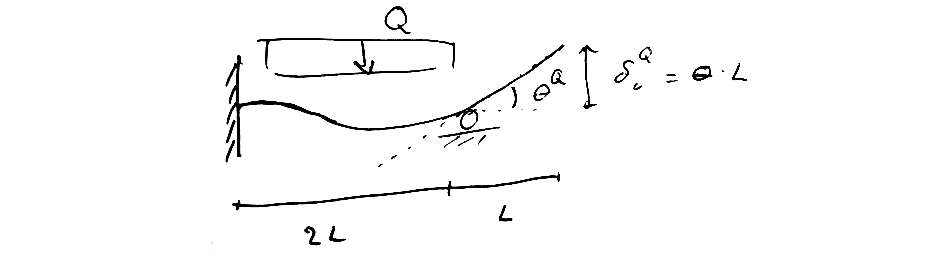 Q
θ^Q
δ_c^Q = θ · L
2L
L